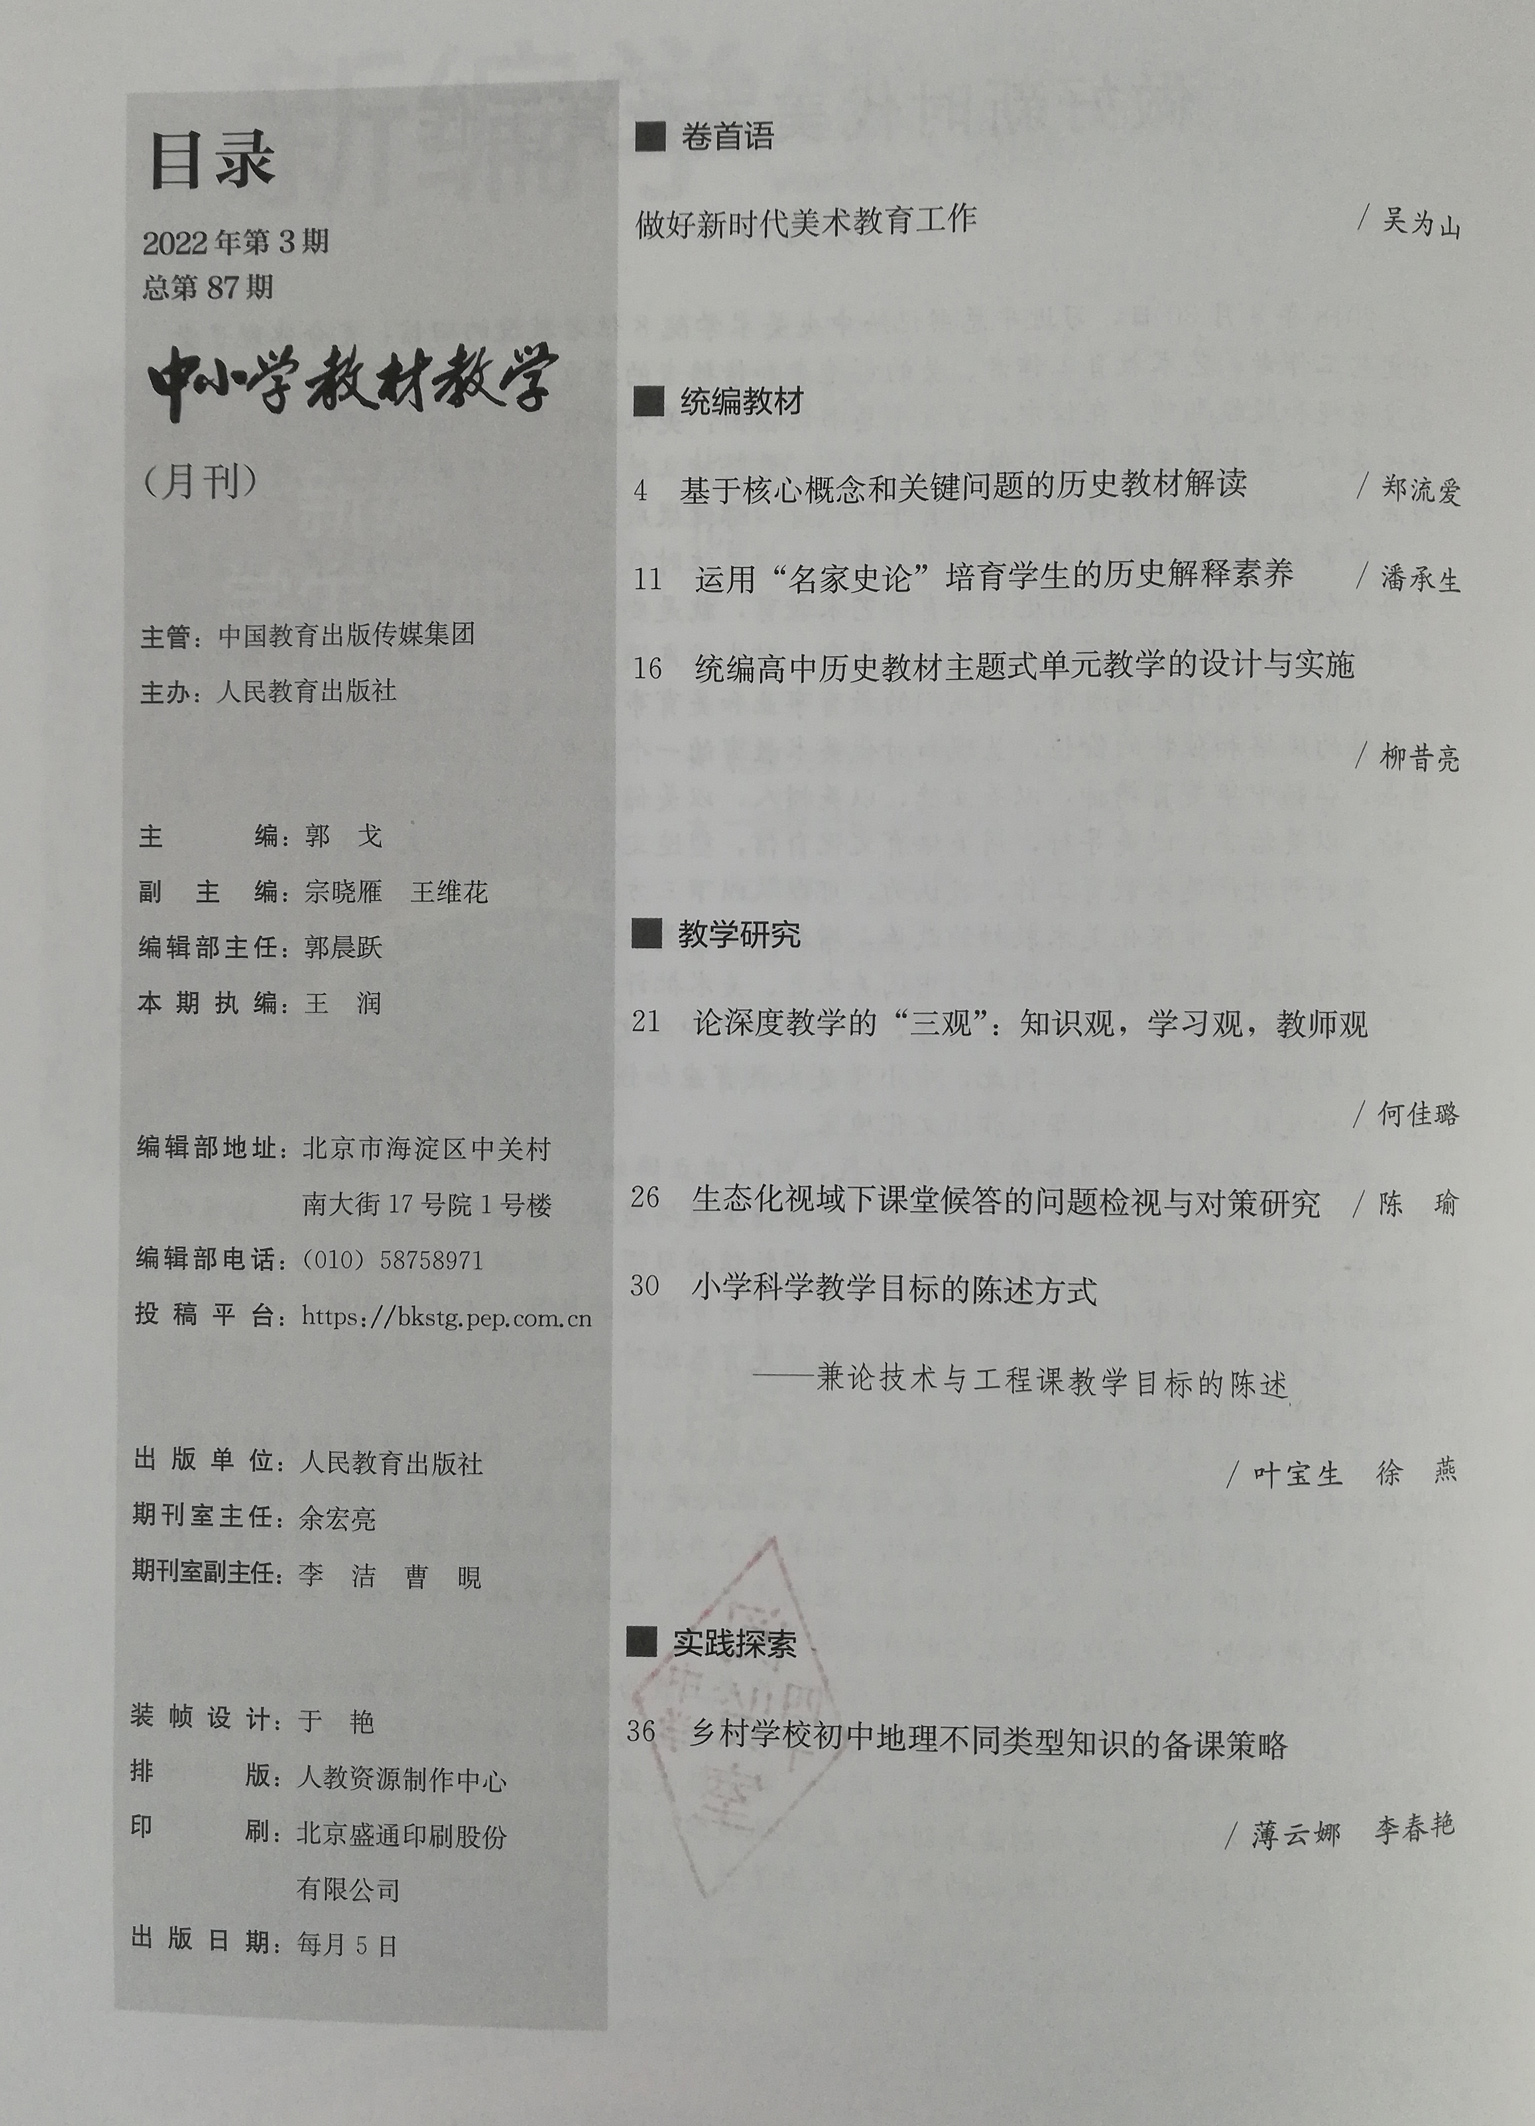 目录
2022年第3期
总第87期
中小学教材教学
（月刊）
主管：中国教育出版传媒集团
主办：人民教育出版社
主编：郭 戈
副主编：宗晓雁 王维花
编辑部主任：郭晨跃
本期执编：王 润
编辑部地址：北京市海淀区中关村
南大街17号院1号楼
编辑部电话：（010）58758971
投稿平台：https://bkstg.pep.com.cn
出版单位：人民教育出版社
期刊室主任：余宏亮
期刊室副主任：李 洁 曹 晛
装帧设计：于 艳
排版：人教资源制作中心
印刷：北京盛通印刷股份
有限公司
出版日期：每月5日
■ 卷首语
做好新时代美术教育工作 / 吴为山
■ 统编教材
4 基于核心概念和关键问题的历史教材解读 / 郑流爱
11 运用“名家史论”培育学生的历史解释素养 / 潘承生
16 统编高中历史教材主题式单元教学的设计与实施
/ 柳昔亮
■ 教学研究
21 论深度教学的“三观”：知识观，学习观，教师观
/ 何佳璐
26 生态化视域下课堂候答的问题检视与对策研究 / 陈 瑜
30 小学科学教学目标的陈述方式
——兼论技术与工程课教学目标的陈述
/ 叶宝生 徐 燕
■ 实践探索
36 乡村学校初中地理不同类型知识的备课策略
/ 薄云娜 李春艳